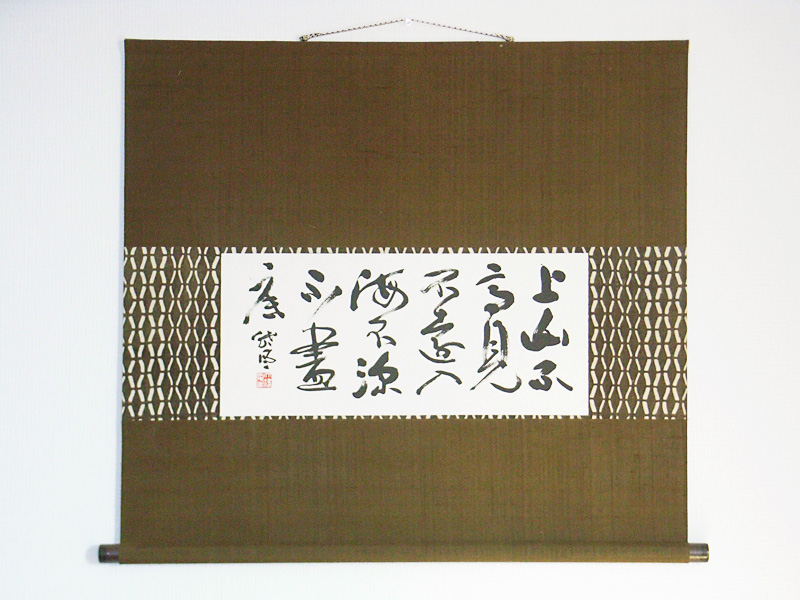 上山不
高見
不遠入
海不深
不盡
底